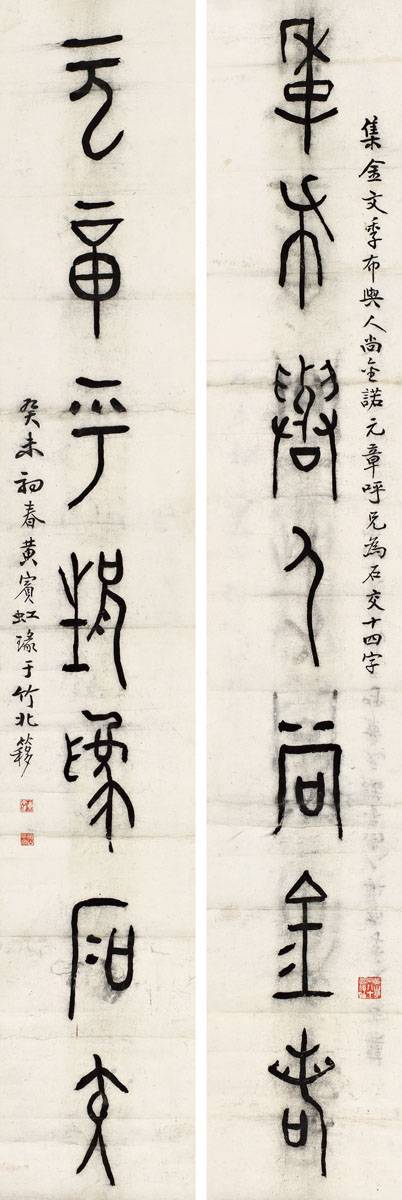 集金文季布與人尚金諾元章呼兄為石交十四字
季布與人尚金諾
元章呼兄為石交
癸未初春黃賓虹瑑于竹北簃